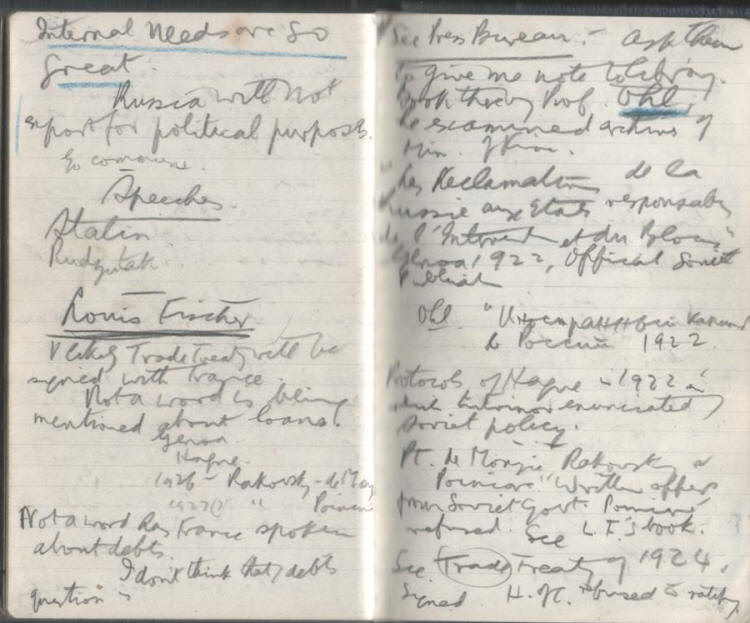 Internal Needs are so
great.
Russia will not
export for political purposes.
Speeches
Stalin
Rudzutak
Louis Fischer
V likely Trade Treaty will be
signed with France.
Not a word is being
mentioned about loans.
Genoa.
Hague.
1926 - Rakovsky - de Monzie
1927(?) " Poincaré
Not a word has France spoken
about debts.
I don't think that debts
question is
See Press Bureau: - Ask them
to give me note to library.
Book there by Prof. Ohl,
he examined archives of
Min. of
Les Réclamations de la
Russie aux États responsables
de l'Intervent. et du Blocus"
Genoa 1922, Official Soviet
Publicat.
Ohl "Иностранный капитал
в России 1922.
Protocols of Hague in 1922 in
which Litvinov enunciated
Soviet policy.
Pt. de Monzie Rakovsky
Poincaré. Written offer
from Soviet Govt. Poincaré
refused. See L.F.'s book.
See Trade Treaty of 1924,
signed H. of C. refused to ratify